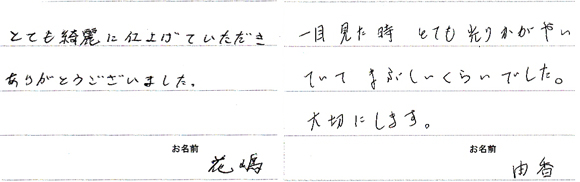 とても綺麗に仕上げていただき
ありがとうございました.
お名前
花嶋
一目見た時 とても光りかがやい
ていて まぶしいくらいでした。
大切にします。
お名前
由香